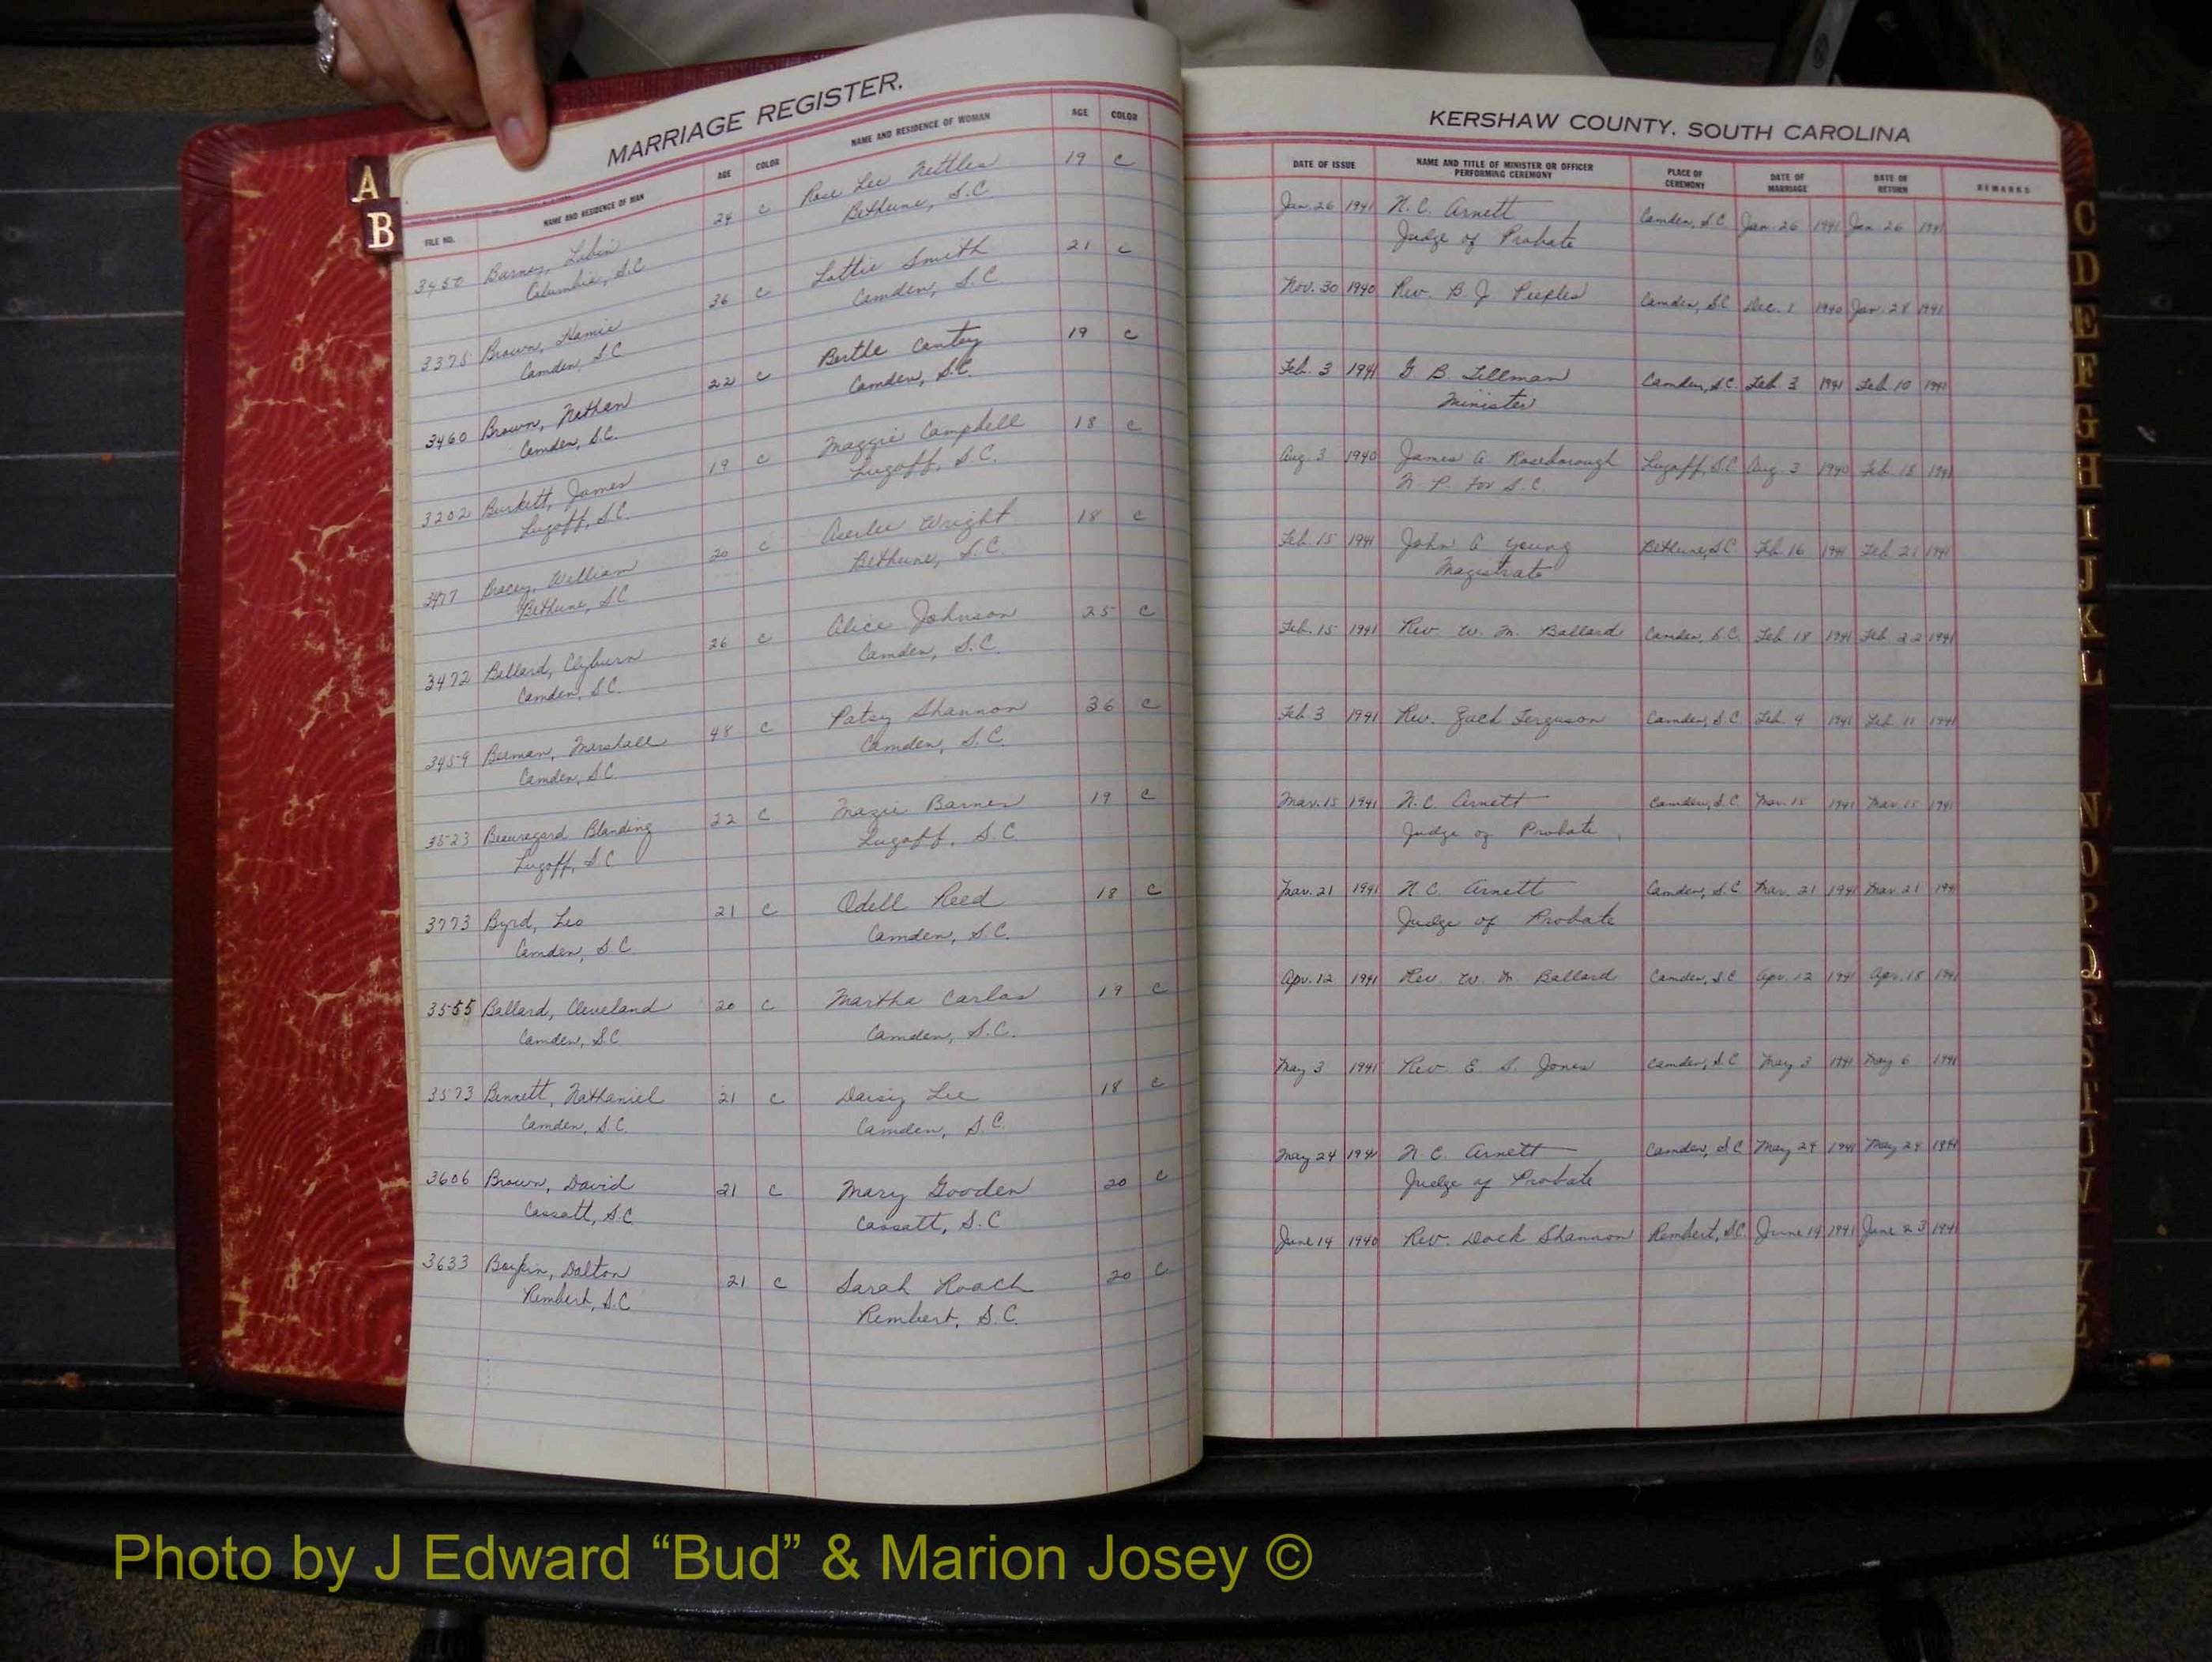 MARRIAGE REGISTER.
FILE NO. NAME AND RESIDENCE OF MAN AGE COLOR NAME AND RESIDENCE OF WOMAN AGE COLOR
3450 Barnes, 24 C Rosa Lee Nettles 19 C
Columbia, S.C. Bethune, S.C.
3375 Brown, 36 C Lottie Smith 21 C
Camden, S.C. Camden, S.C.
3460 Brown, Nathan 22 C Cantey 19 C
Camden, S.C. Camden, S.C.
3202 Burkett, James 19 C Maggie Campbell 18 C
Lugoff, S.C. Lugoff, S.C.
3477 Bracey, William 20 C Wright 18 C
Bethune, S.C. Bethune, S.C.
3472 Ballard, Clyburn 26 C Alice Johnson 25 C
Camden, S.C. Camden, S.C.
3459 Beeman, Marshall 48 C Patsy Shannon 36 C
Camden, S.C. Camden, S.C.
3523 Beauregard Blanding 22 C Mazie Barnes 19 C
Lugoff, S.C. Lugoff, S.C.
3773 Byrd, Leo 21 C Odell Reed 18 C
Camden, S.C. Camden, S.C.
3555 Ballard, Cleveland 20 C Martha Carlos 19 C
Camden, S.C. Camden, S.C.
3573 Bennett, Nathaniel 21 C Daisy Lee 18 C
Camden, S.C. Camden, S.C.
3606 Brown, David 21 C Mary Gooden 20 C
Cassatt, S.C. Cassatt, S.C.
3633 Boykin, Dalton 21 C Sarah Roach 20 C
Rembert, S.C. Rembert, S.C.
KERSHAW COUNTY, SOUTH CAROLINA
DATE OF ISSUE NAME AND TITLE OF MINISTER OR OFFICER PERFORMING CEREMONY PLACE OF CEREMONY DATE OF MARRIAGE DATE OF RETURN REMARKS
Jan. 26 1941 N. C. Arnett Camden, S.C. Jan. 26 1941 Jan 26 1941
Judge of Probate
Nov. 30 1940 Rev. B. J. Peeples Camden, S.C. Dec. 1 1940 Jan. 28 1941
Feb. 3 1941 G. B. Tillman Camden, S.C. Feb. 3 1941 Feb. 10 1941
Minister
Aug. 3 1940 James A. Roseborough Lugoff, S.C. Aug. 3 1940 Feb. 15 1941
N. P. For S.C.
Feb. 15 1941 John A Young Bethune, S.C. Feb. 16 1941 Feb. 21 1941
Magistrate
Feb. 15 1941 Rev W. M. Ballard Camden, S.C. Feb 18 1941 Feb. 22 1941
Feb 3 1941 Rev. Zack Ferguson Camden, S.C. Feb. 4 1941 Feb 11 1941
Mar. 15 1941 N. C. Arnett Camden, S.C. Mar. 15 1941 Mar. 15 1941
Judge of Probate
Mar. 21 1941 N. C. Arnett Camden, S.C. Mar. 21 1941 Mar. 21 194
Judge of Probate
Apr. 12 1941 Rev. W. M. Ballard Camden, S.C. Apr. 12 1941 Apr. 15 1941
May 3 1941 Rev. E. S. Jones Camden, S.C. May 3 1941 May 6 1941
May 24 1941 N C. Arnett Camden, S.C. May 24 1941 May 24 1941
Judge of Probate
June 14 1940 Rev. Dock Shannon Rembert, S.C. June 14 1941 June 23 1941
A
B
C
D
E
F
G
H
I
J
K
L
N
O
P
Q
R
S
T
U
V
Y
Z
Photo by J Edward “Bud” & Marion Josey ©